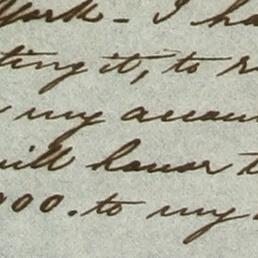 York - I ha
ting it, to r
my accoun
will honor t
000. to my